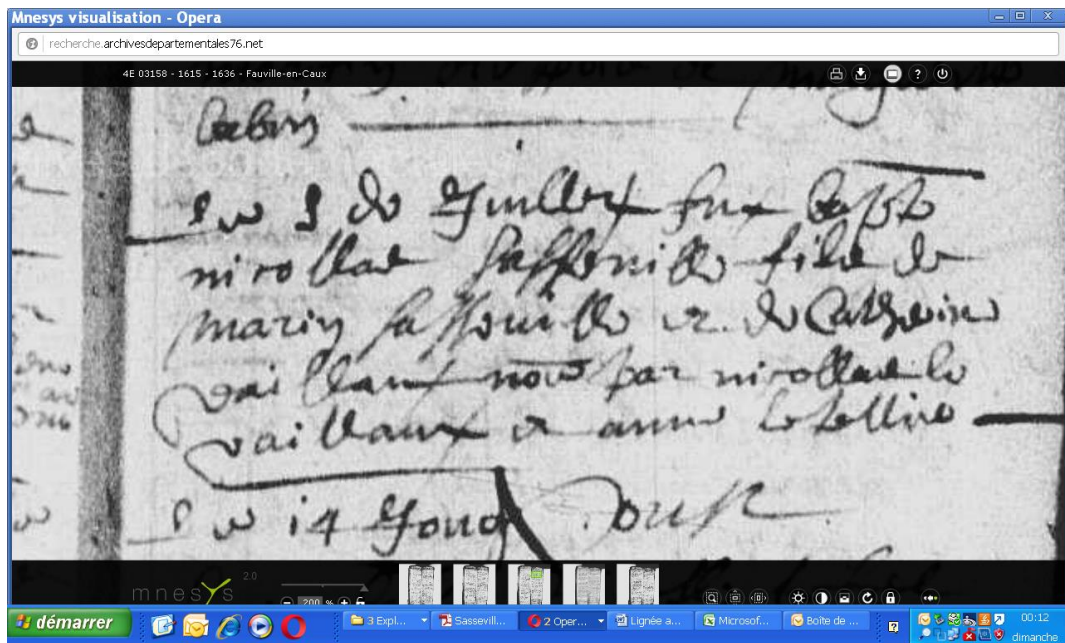 Mnesys visualisation - Opera
recherche.archivesdepartementales76.net
4E 03158 - 1615 - 1636 - Fauville-en-Caux
Le de Juillet fut
nicollas Sasseville filz de
marin Sasseville et de Catherine
vaillant par nicollas le
vaillant et anne le tellier
Le 14 Jour
mnesys 2.0
200 %
démarrer
3 Expl...
Sassevill...
2 Oper...
Lignée a...
Microsof...
Boîte de ...
00:12
dimanche